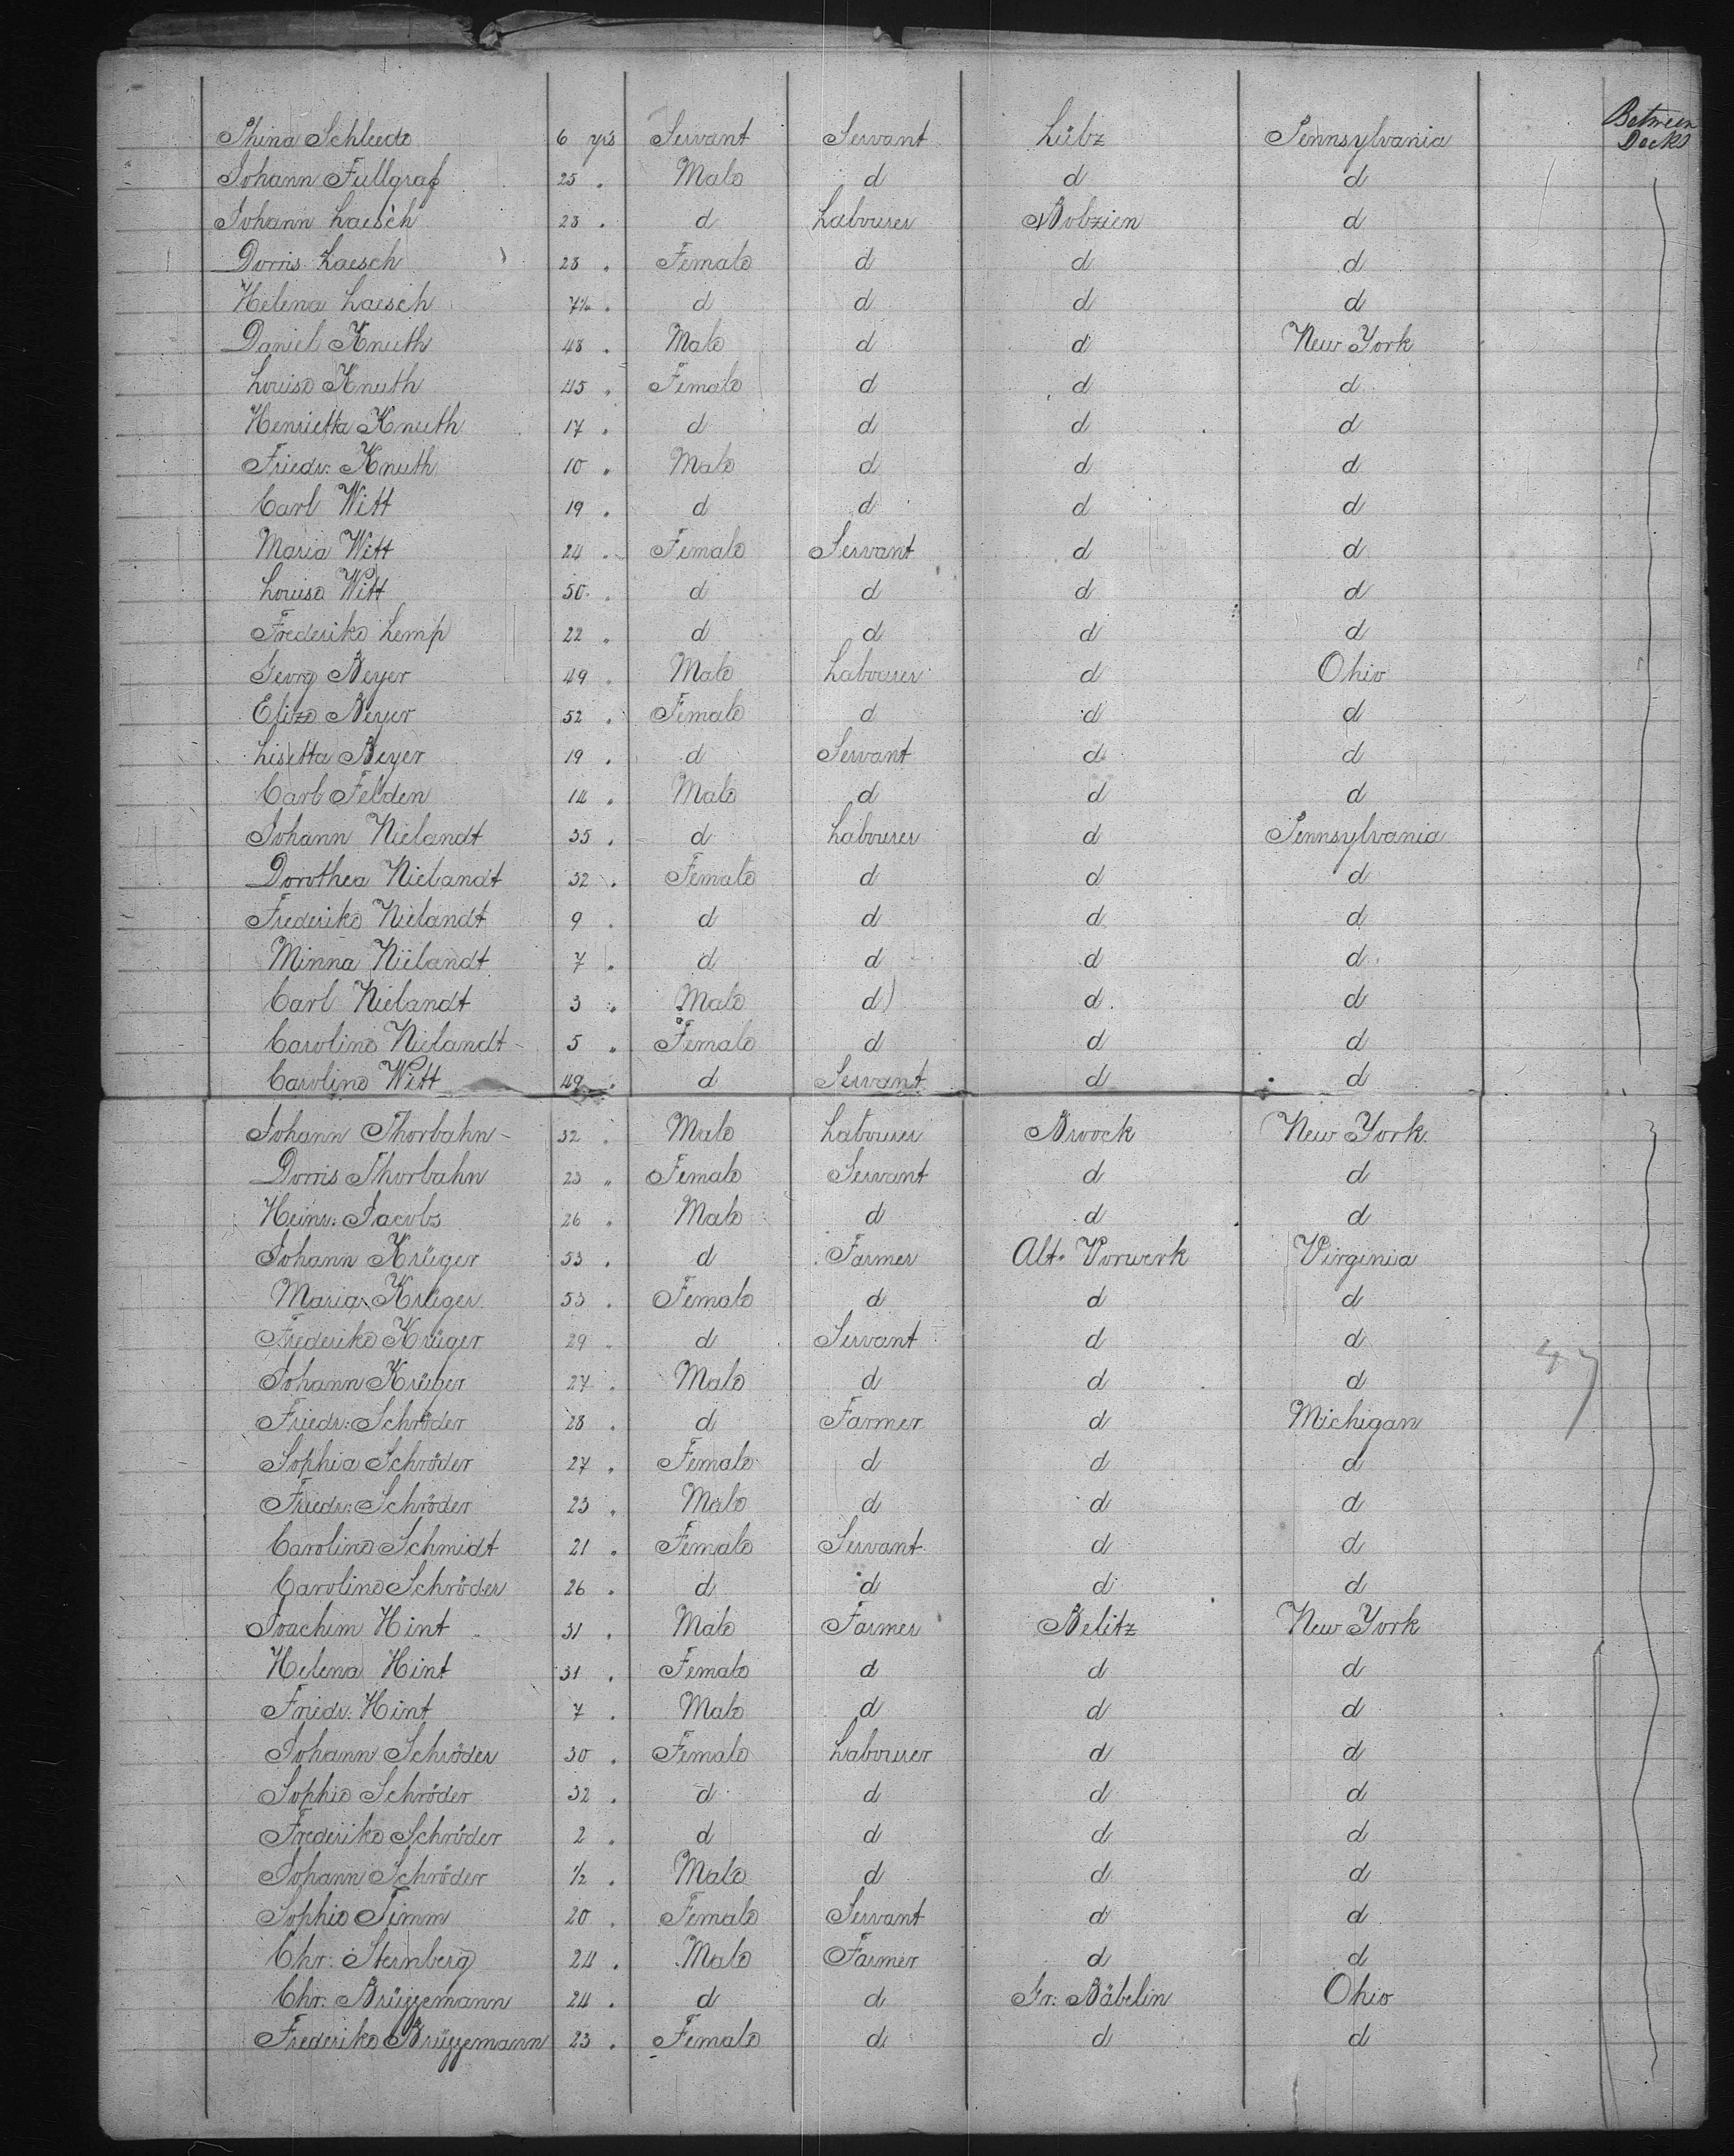 Between
Thina Schleede 6 yrs Servant Servant Lübz Pennsylvania Decks
Johann Fullgraf 25 " Male d d d
Johann Laesch 28 " d Labourer Bobzien d
Dorris Laesch 28 " Female d d d
Helena Laesch " d d d d
Daniel Knuth 48 " Male d d New York
Louise Knuth 45 " Female d d d
Henrietta Knuth 17 " d d d d
Friedr: Knuth 10 " Male d d d
Carl Witt 19 " d d d d
Maria Witt 24 " Female Servant d d
Louise Witt 50 " d d d d
Frederike Lemp 22 " d d d d
Georg Beyer 49 " Male Labourer d Ohio
Elize Beyer 52 " Female d d d
Lisetta Beyer 19 " d Servant d d
Carl Felden 14 " Male d d d
Johann Nielandt 35 " d Labourer d Pennsylvania
Dorothea Nielandt 32 " Female d d d
Frederike Nielandt 9 " d d d d
Minna Nielandt 7 " d d d d
Carl Nielandt 3 " Male d d d
Caroline Nielandt 5 " Female d d d
Caroline Witt 49 " d Servant d d
Johann Thorbahn 32 " Male Labourer Broock New York
Dorris Thorbahn 23 " Female Servant d d
Heinr: Jacobs 26 " Male d d d
Johann Krüger 53 " d Farmer Alt. Vorwerk Virginia
Maria Krüger 53 " Female d d d
Frederike Krüger 29 " d Servant d d
Johann Krüger 27 " Male d d d
Friedr: Schröder 28 " d Farmer d Michigan
Sophia Schröder 27 " Female d d d
Friedr: Schröder 23 " Male d d d
Caroline Schmidt 21 " Female Servant d d
Caroline Schröder 26 " d d d d
Joachim Hint 31 " Male Farmer Belitz New York
Helena Hint 31 " Female d d d
Friedr: Hint 7 " Male d d d
Johann Schröder 30 " Female Labourer d d
Sophie Schröder 32 " d d d d
Frederike Schröder 2 " d d d d
Johann Schröder ½ " Male d d d
Sophie Timm 20 " Female Servant d d
Chr: Sternberg 24 " Male Farmer d d
Chr: Brüggemann 24 " d d Gr: Bäbelin Ohio
Frederike Brüggemann 23 " Female d d d